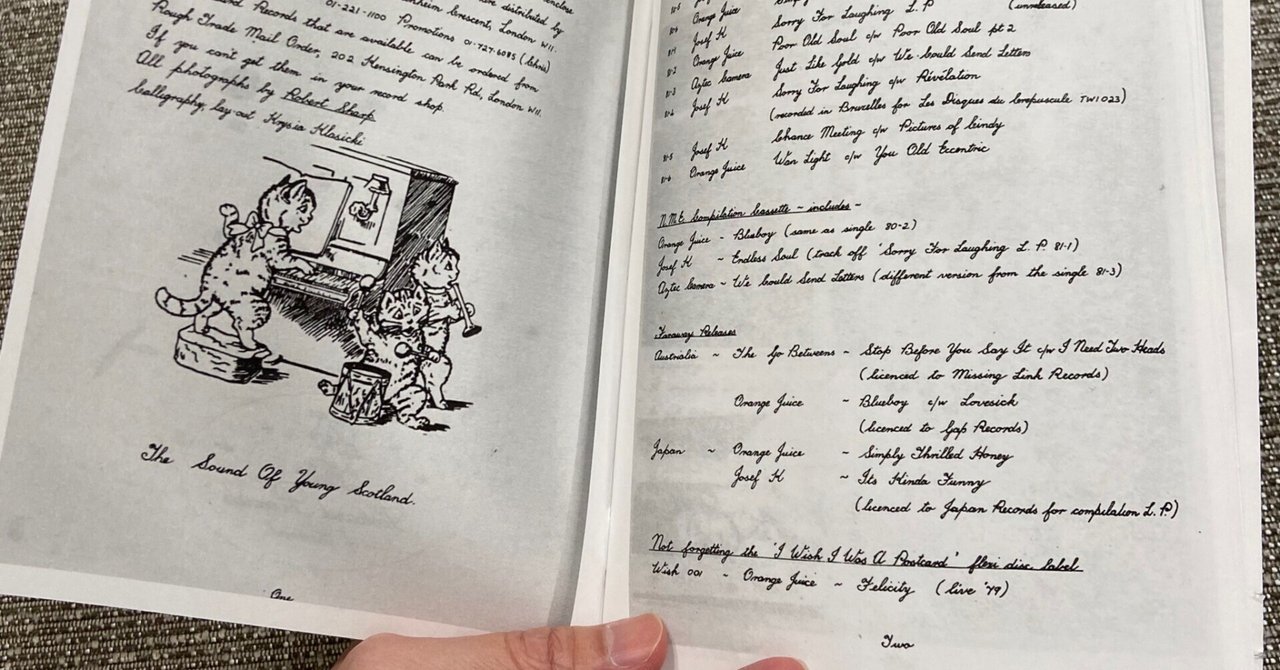 have distributed by
Crescent, London W11.
01-221-1100 Promotions 01-727-6085
Records that are available can be ordered from
Rough Trade Mail Order, 202 Kensington Park Rd, London W11.
If you can't get them in your record shop
All photographs by Robert Sharp
Calligraphy, lay out Krysia Klasicki
The Sound Of Young Scotland.
One
80-5 Orange Juice
(unreleased)
Josef K Sorry For Laughing L.P.
81-2 Orange Juice Poor Old Soul c/w Poor Old Soul pt 2
81-3 Aztec Camera Just Like Gold c/w We Could Send Letters
81-4 Josef K Sorry For Laughing c/w Révélation
(recorded in Bruxelles for Les Disques du Crepuscule TWI 023)
81-5 Josef K Chance Meeting c/w Pictures of Cindy
81-6 Orange Juice Wan Light c/w You Old Eccentric
N.M.E Compilation Cassette ~ includes ~
Orange Juice ~ Blueboy (same as single 80-2)
Josef K ~ Endless Soul (track off 'Sorry For Laughing L.P. 81-1)
Aztec Camera ~ We Could Send Letters (different version from the single 81-3)
Faraway Releases
Australia ~ The Go Betweens ~ Stop Before You Say It c/w I Need Two Heads
(licenced to Missing Link Records)
Orange Juice ~ Blueboy c/w Lovesick
(licenced to Gap Records)
Japan ~ Orange Juice ~ Simply Thrilled Honey
Josef K ~ Its Kinda Funny
(licenced to Japan Records for compilation L.P.)
Not forgetting the 'I Wish I Was A Postcard' flexi disc label
Wish 001 ~ Orange Juice ~ Felicity (live '79)
Two